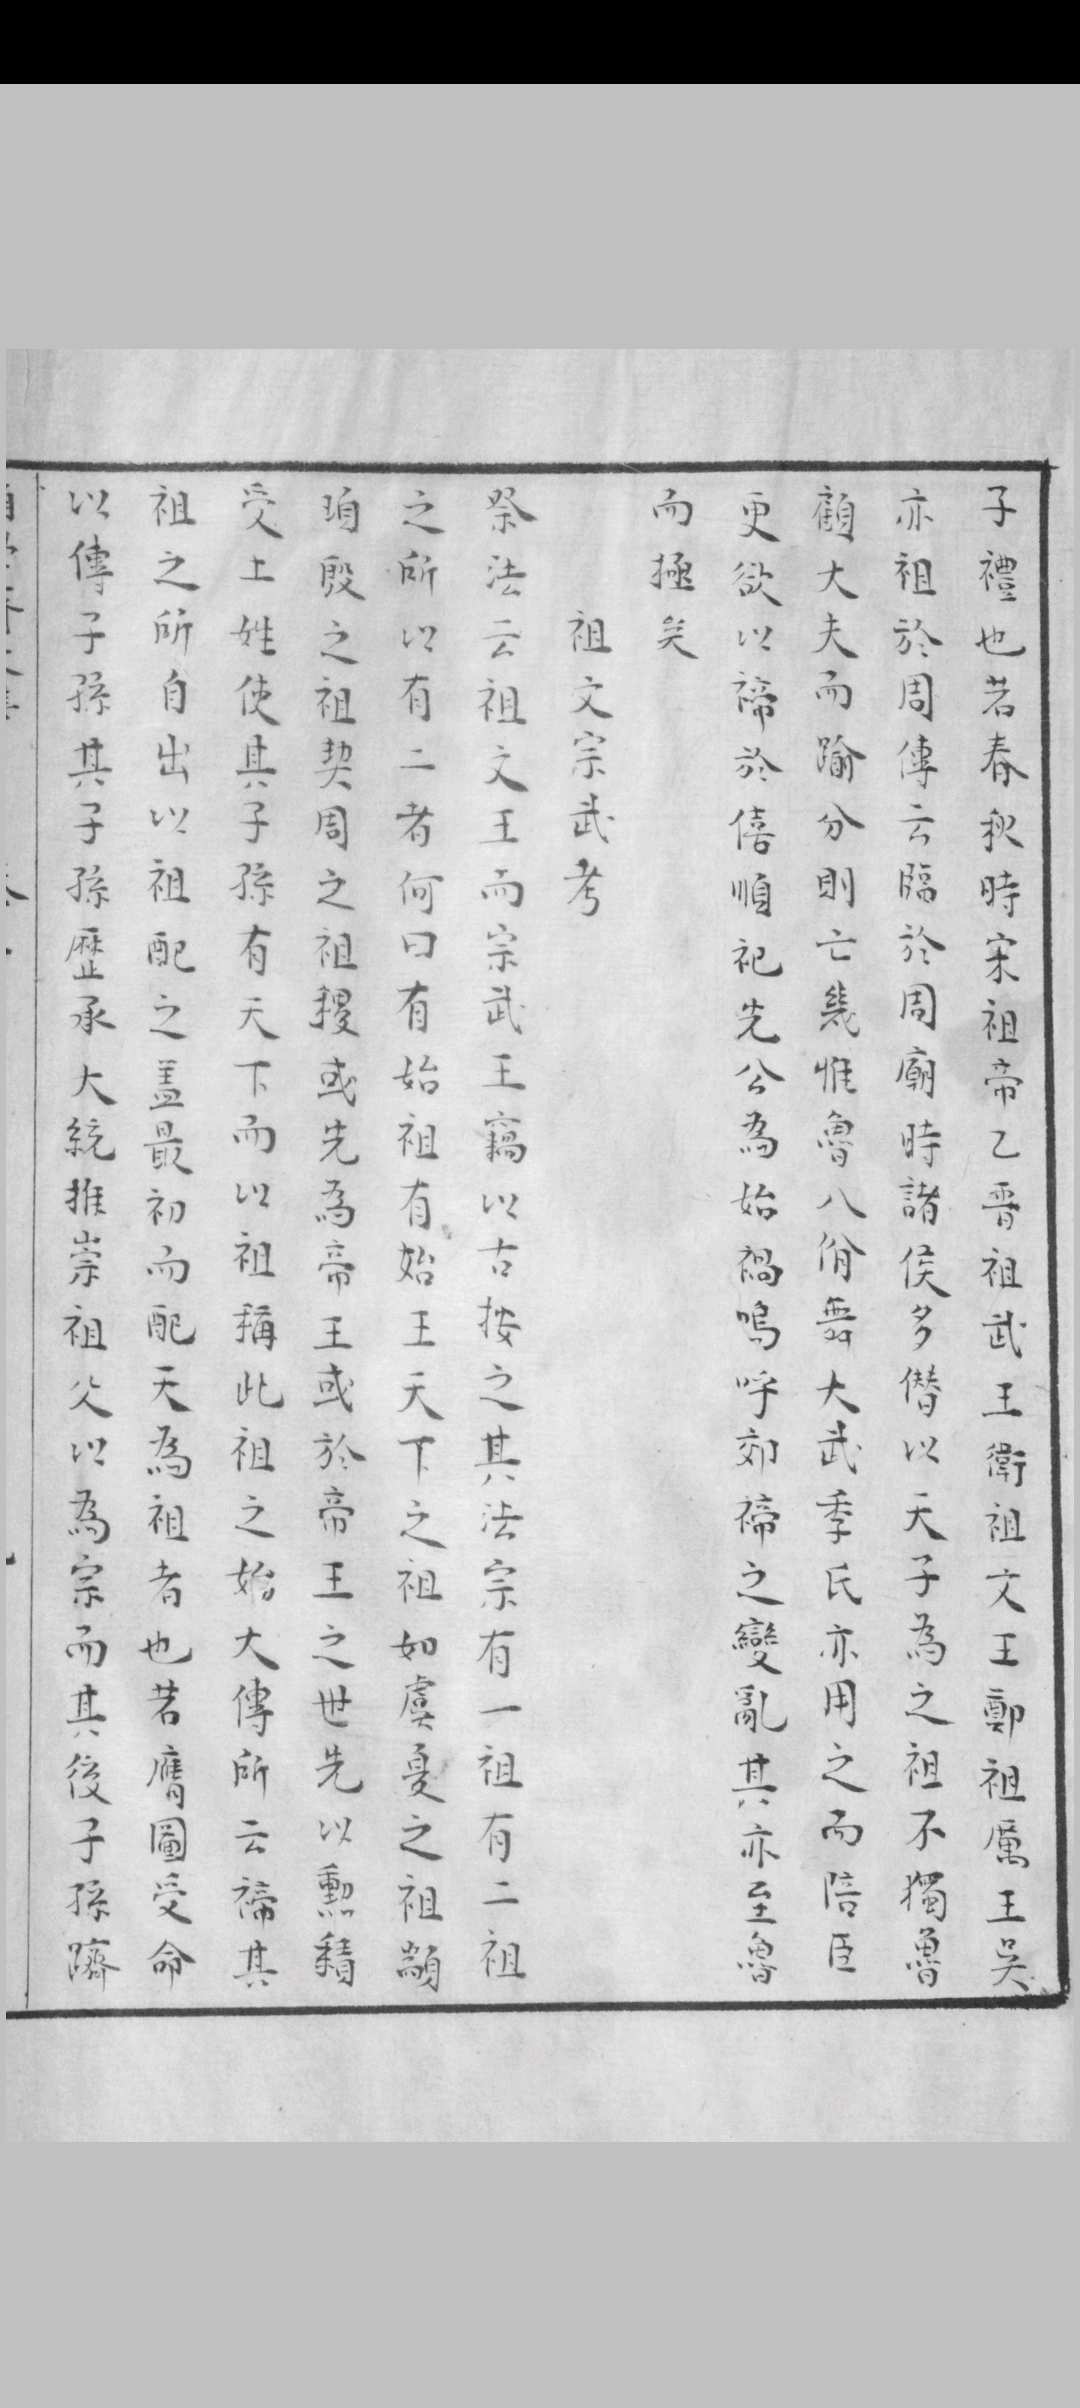 子禮也若春秋時宋祖帝乙晋祖武王衛祖文王鄭祖厲王吳
亦祖於周傳云臨於周廟時諸侯多僭以天子為之祖不獨魯
顧大夫而踰分則亡幾惟魯八佾舞大武季氏亦用之而陪臣
更欲以禘於僖順祀先公為始禍嗚呼郊禘之變亂其亦至魯
而極矣
祖文宗武考
祭法云祖文王而宗武王竊以古按之其法宗有一祖有二祖
之所以有二者何曰有始祖有始王天下之祖如虞夏之祖顓
頊殷之祖契周之祖稷或先為帝王或於帝王之世先以勲績
受土姓使其子孫有天下而以祖稱此祖之始大傳所云禘其
祖之所自出以祖配之盖最初而配天為祖者也若膺圖受命
以傳子孫其子孫歷承大統推崇祖父以為宗而其後子孫躋